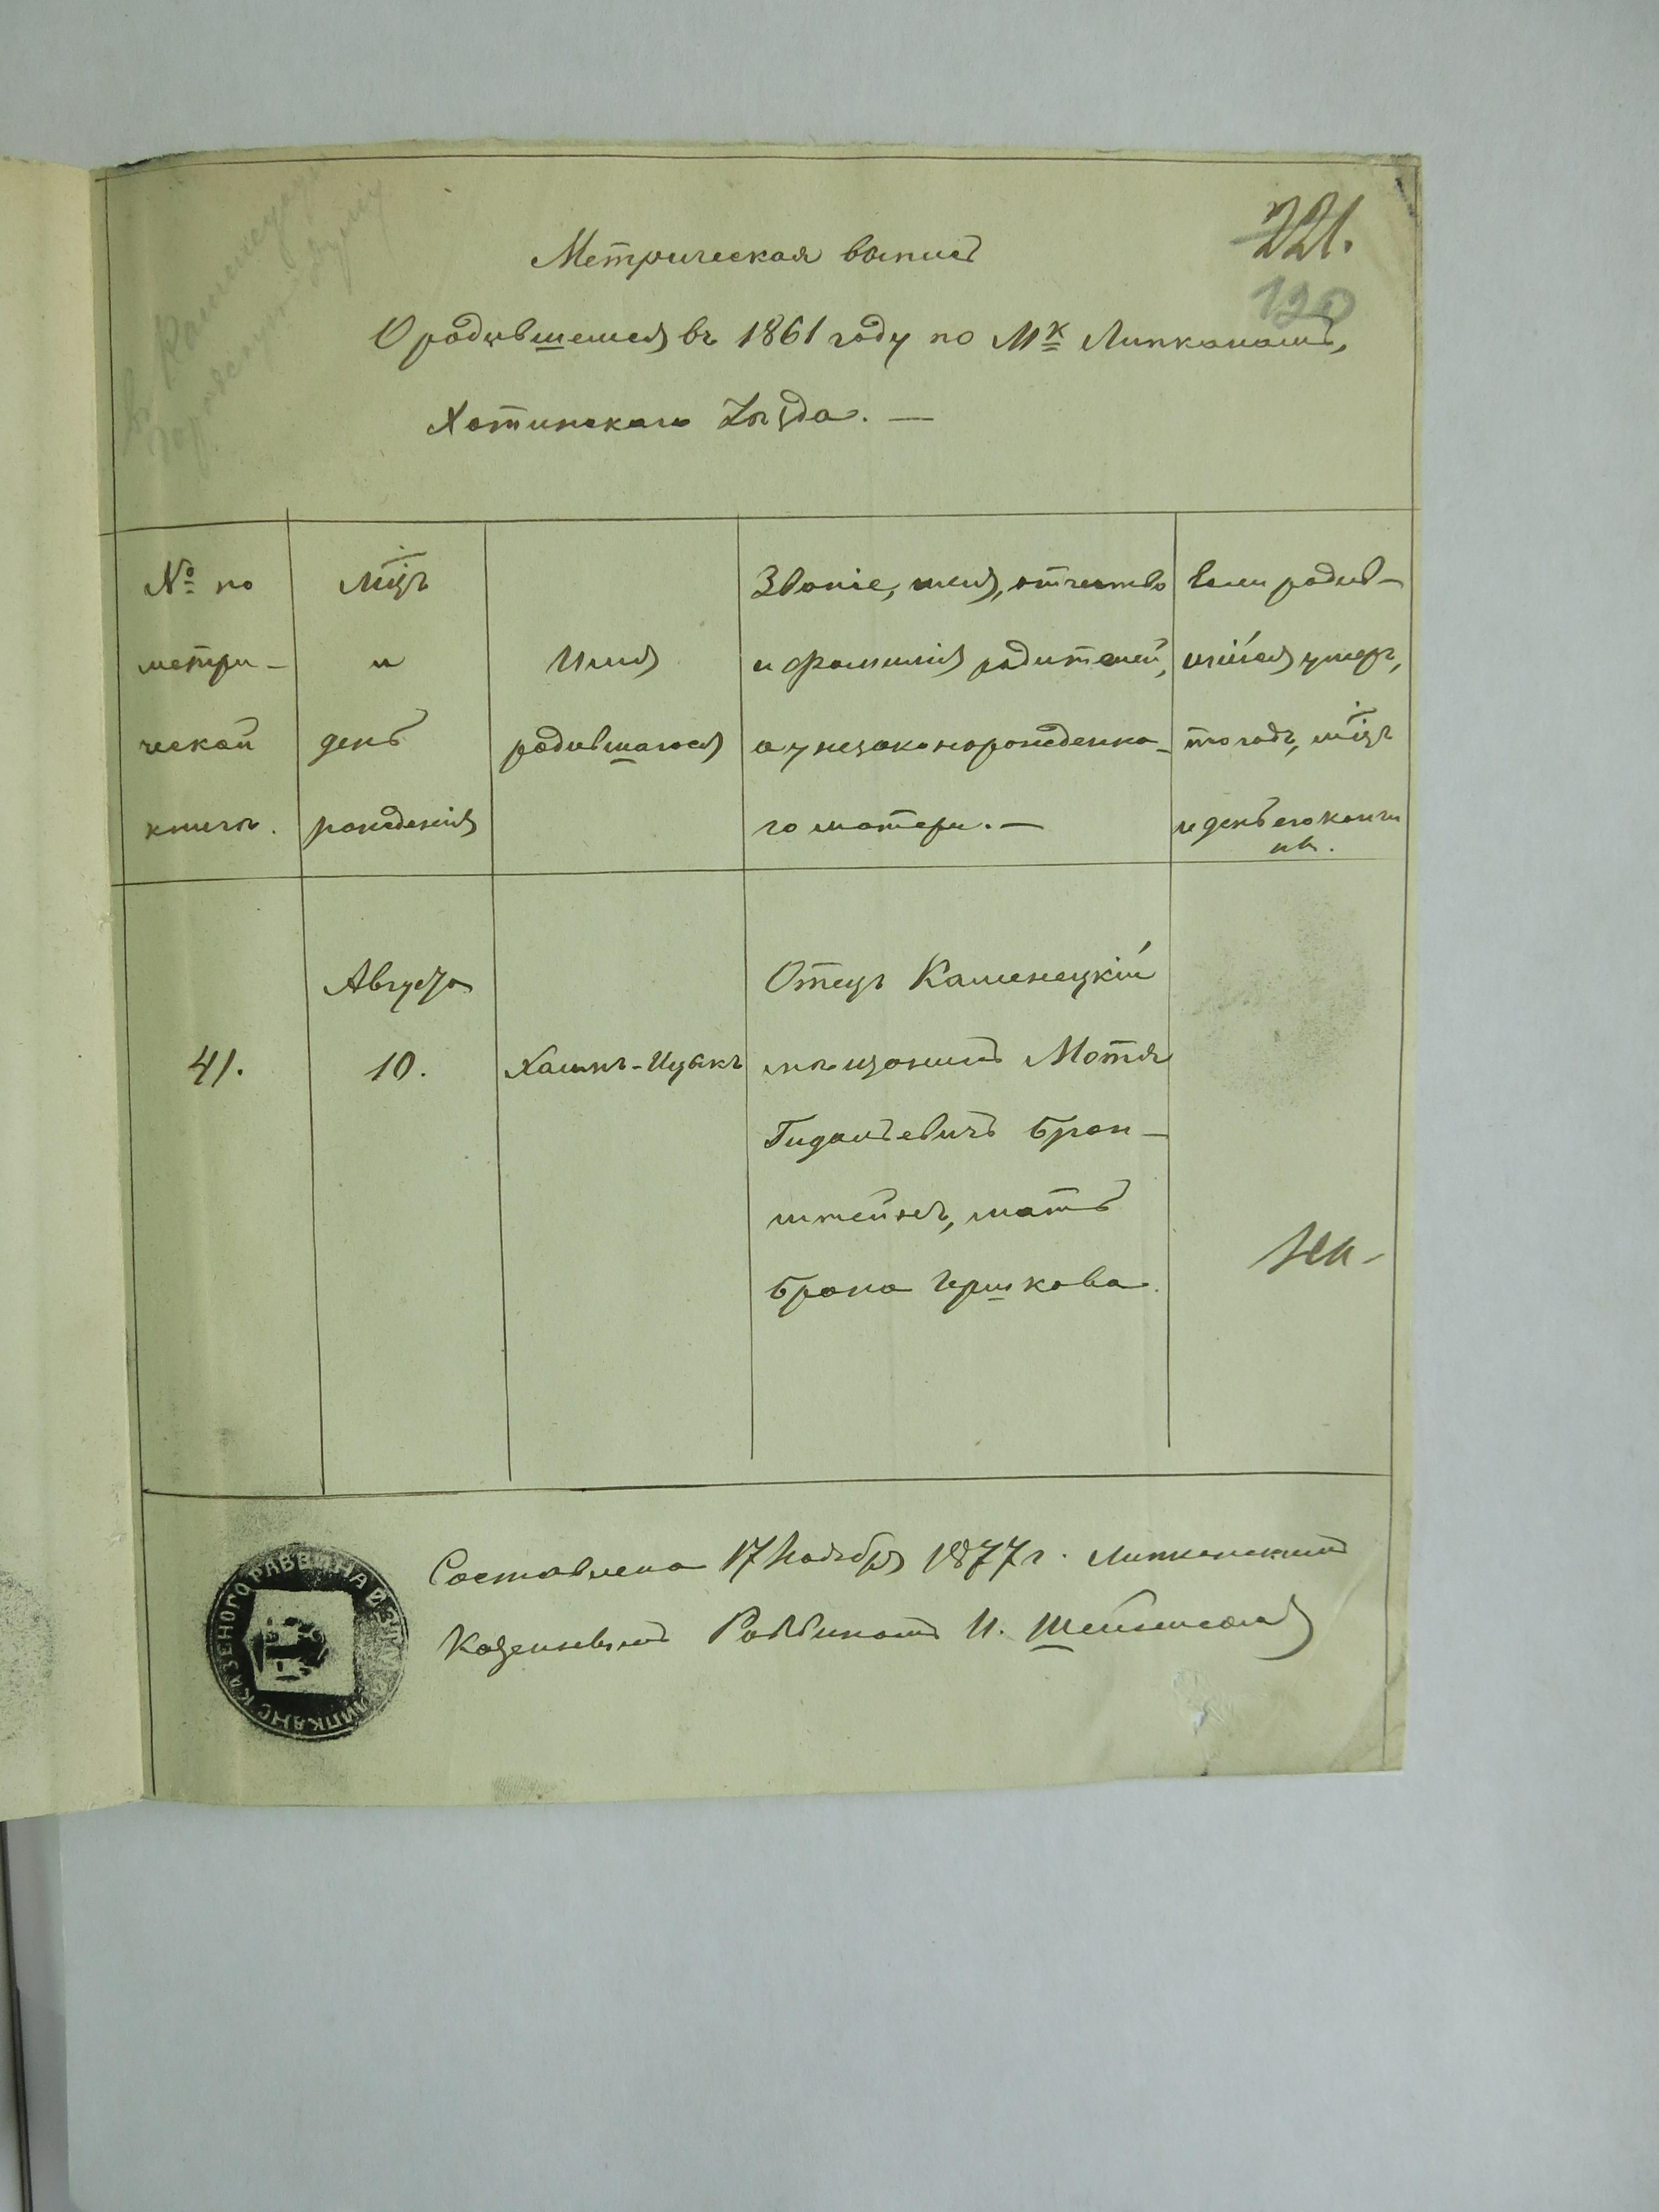 221.
120
Метрическая выпись
О родившемся въ 1861 году по Мк Липканамъ,
Хотинскаго Уѣзда. —
№ по
метри-
ческой
книгѣ.
Мцъ
и
день
рожденія
Имя
родившагося
Званіе, имя, отчество
и фамилія родителей,
а у незаконорожденна-
го матери. —
Если родив-
шійся умеръ,
то годъ, мцъ
и день его кончи
ны.
41.
Августа
10.
Хаимъ-Ицыкъ
Отецъ Каменецкій
мѣщанинъ Мотя
Гидальевичъ Брон-
штейнъ, мать
Брана Гершкова.
Составлена 17 Ноября 1877 г. Липканскимъ
Казеннымъ Раввиномъ И.
КАЗЕНОГО РАВВИНА ЛИПКАНС